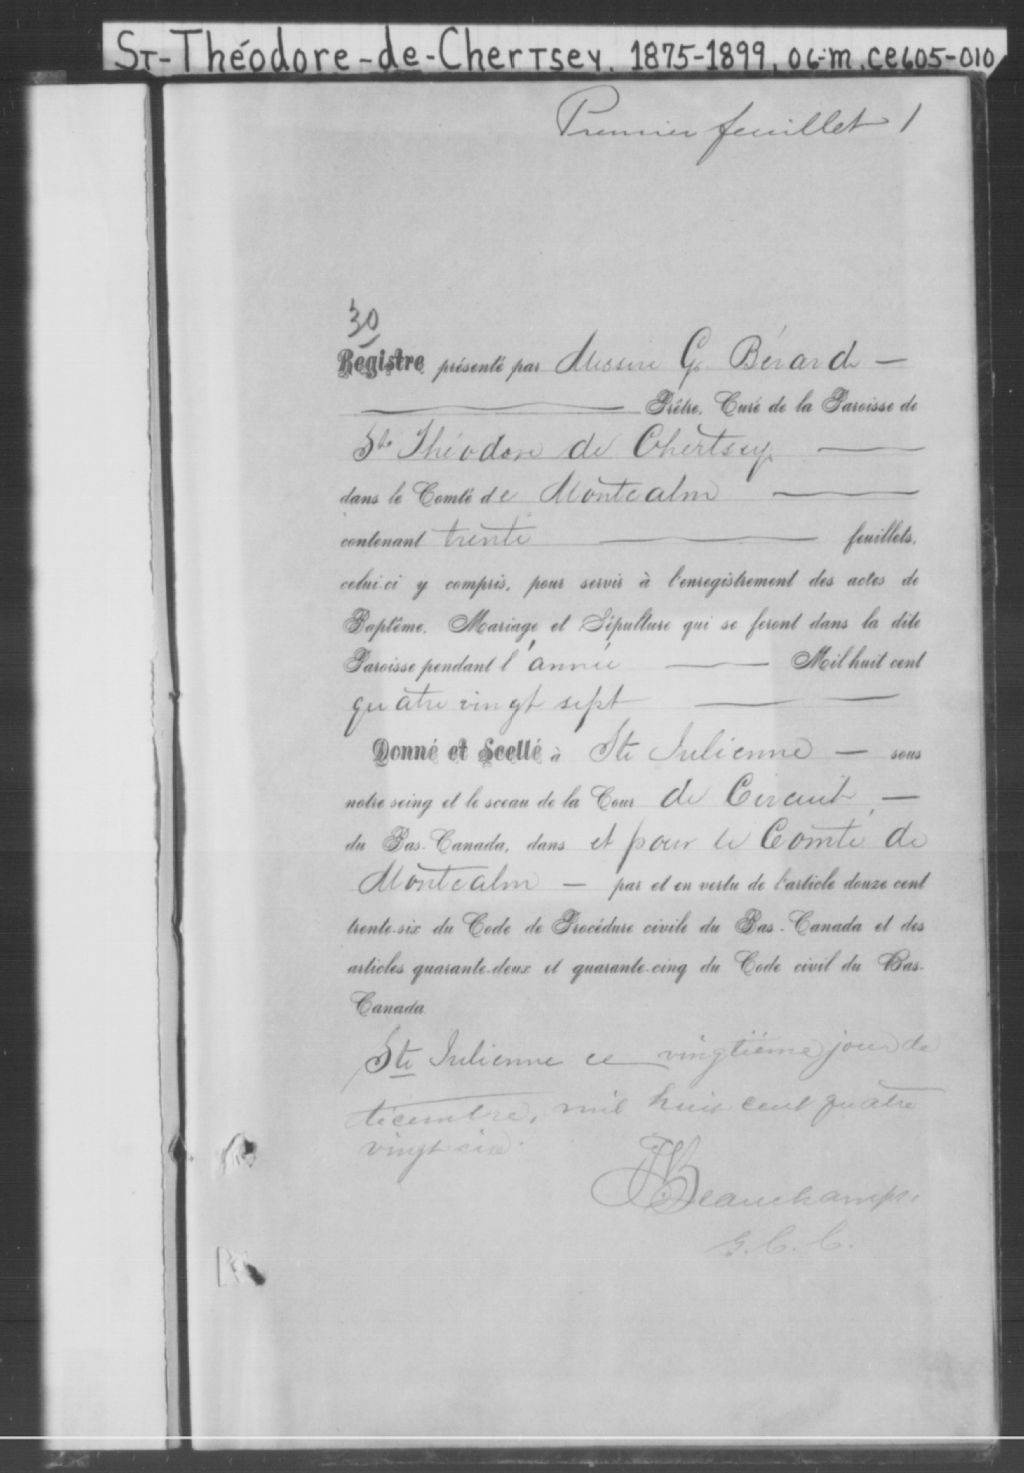 ST-Théodore-de-Chertsey. 1875-1899, 06-m. CE605-010
Premier feuillet 1
30
Registre présenté par Messire G. Bérard —
Prêtre, Curé de la Paroisse de
St Théodore de Chertsey
dans le Comté de Montcalm
contenant trente feuillets,
celui-ci y compris, pour servir à l'enregistrement des actes de
Baptême, Mariage et Sépulture qui se feront dans la dite
Paroisse pendant l'année Mil huit cent
quatre vingt sept
Donné et Scellé à Ste Julienne — sous
notre seing et le sceau de la Cour de Circuit —
du Bas-Canada, dans et pour le Comté de
Montcalm — par et en vertu de l'article douze cent
trente-six du Code de Procédure civile du Bas-Canada et des
articles quarante-deux et quarante-cinq du Code civil du Bas-
Canada
Ste Julienne ce vingtième jour de
décembre, mil huit cent quatre
vingt six.
Beauchamp
G. C. C.